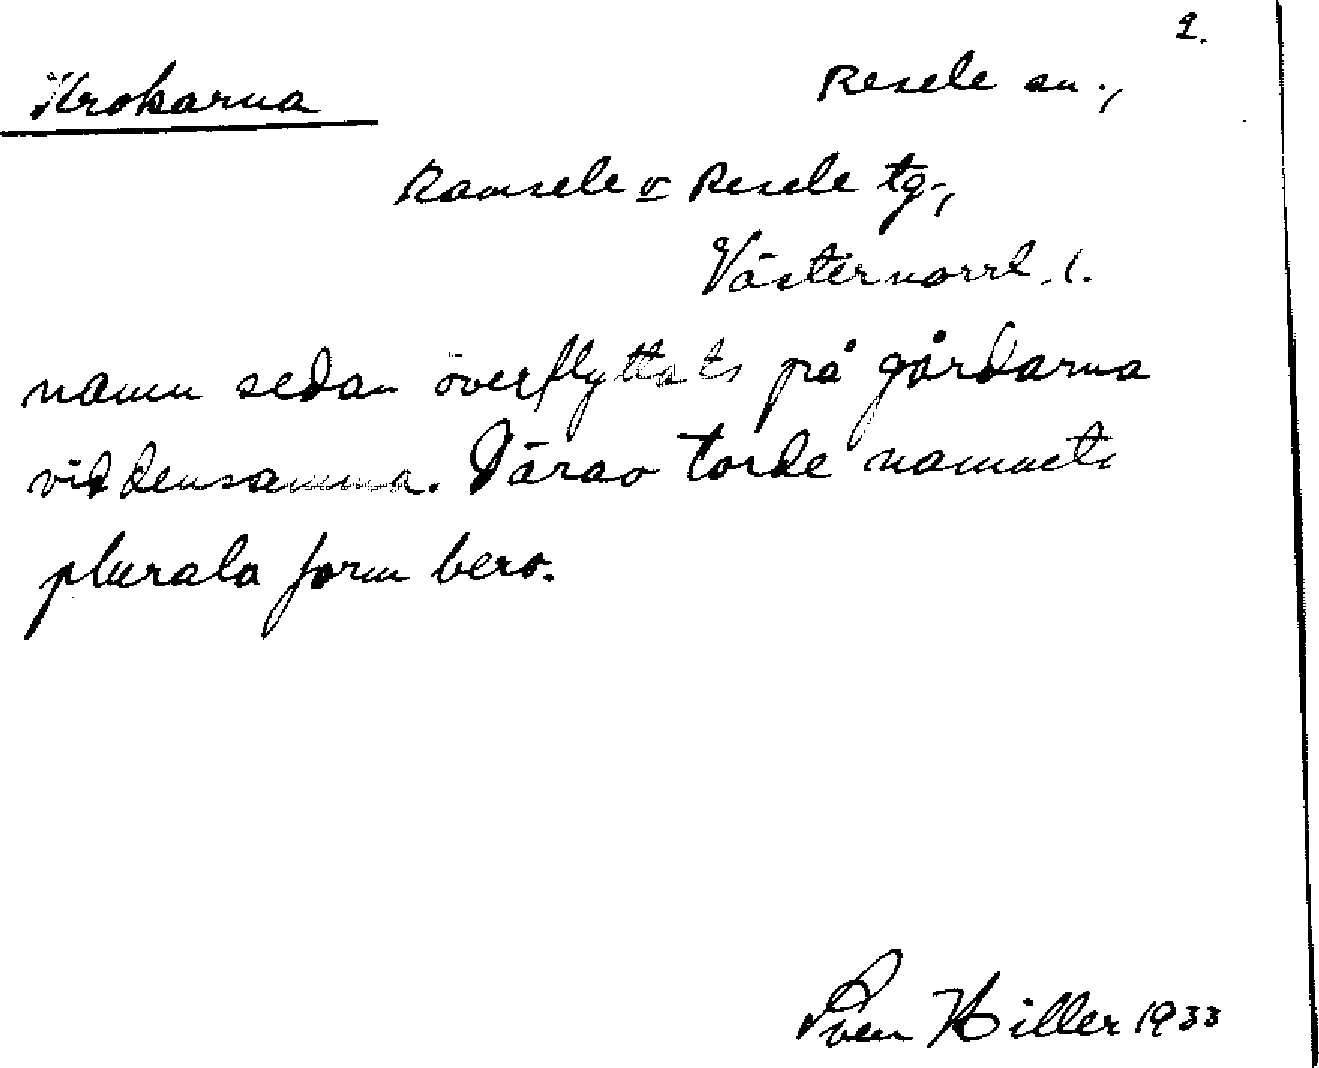 2.
Krokarna
Resele sn.,
Ramsele o Resele tg.,
Västernorrl. l.
namn sedan överflyttats på gårdarna
vid densamma. Därav torde namnets
plurala form bero.
Sven Hiller 1933